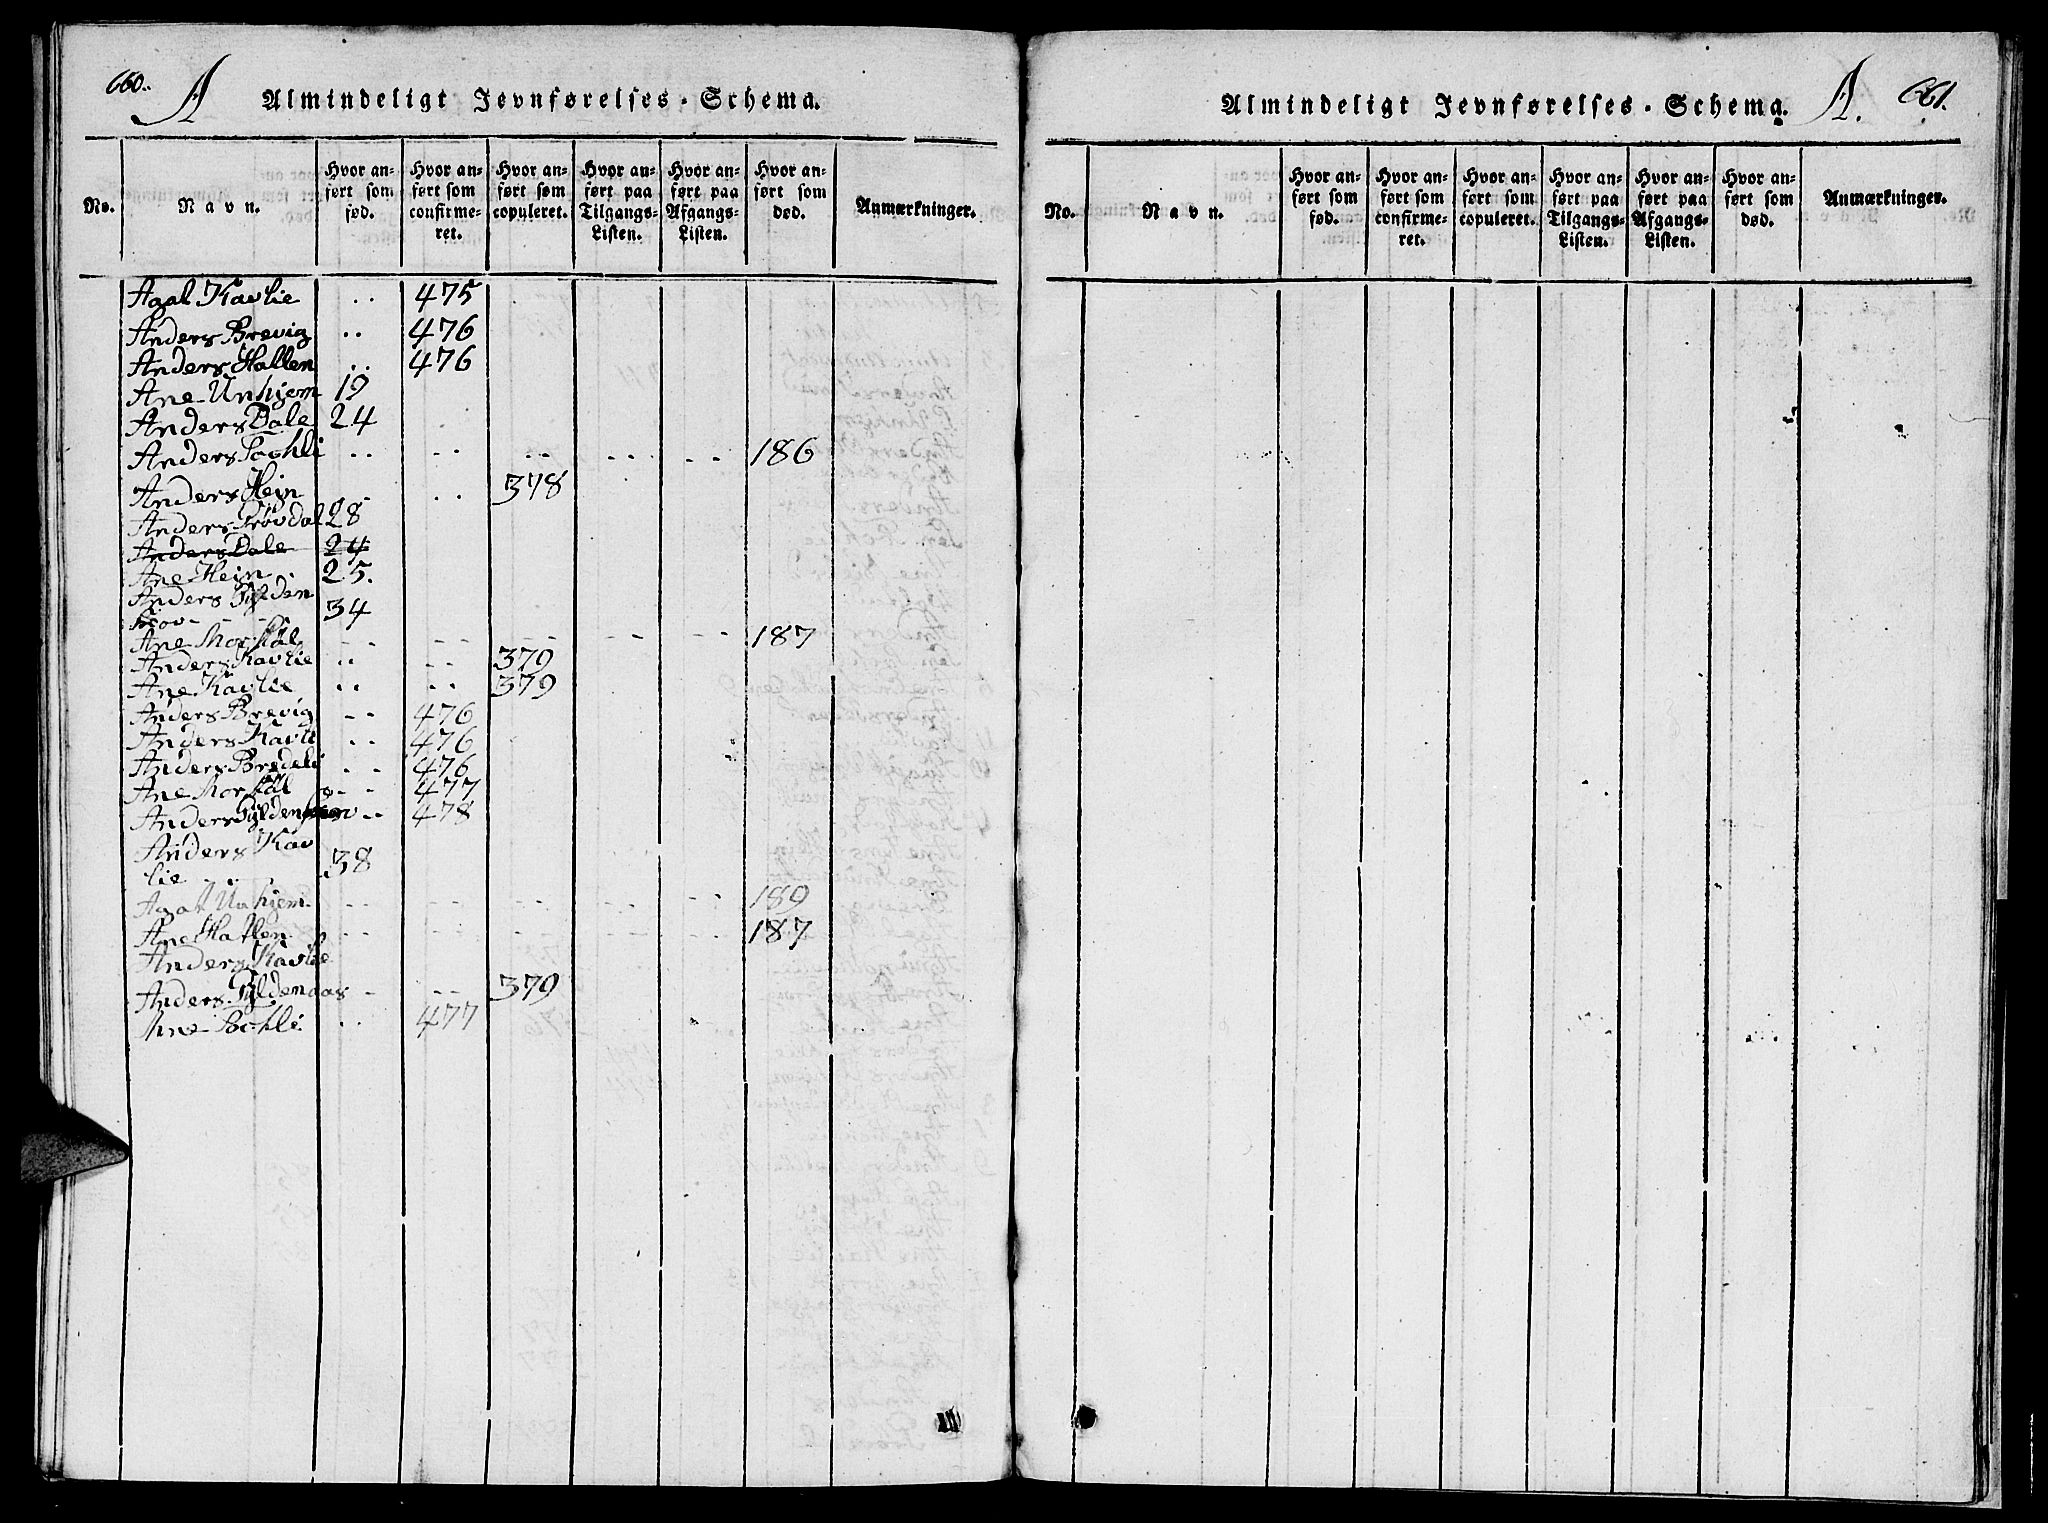 660.
A
Almindeligt Jevnførelses-Schema.
No.
Navn.
Hvor an-
ført som
fød.
Hvor an-
ført som
confirme-
ret.
Hvor an-
ført som
copuleret.
Hvor an-
ført paa
Tilgangs-
Listen.
Hvor an-
ført paa
Afgangs-
Listen.
Hvor an-
ført som
død.
Anmærkninger.
Agat Kavlie .. 475
Anders Brevig .. 476
Anders Hatlen .. 476
Ane Unhjem 19
Anders Dale 24
Anders .. .. .. .. .. 186
Anders Hejn .. 378
Anders Prövdal 28
Anders Dale 24
Ane Hejn 25.
Anders Gylden
skov - - 34
Ane Morstöl -- -- -- -- -- 187
Anders Kavlie .. -- 379
Ane Kavlie .. -- 379
Anders Brevig -- 476
Anders Kavli .. 476
Anders Bredeli -- 476
Ane Morstöl -- 477
Anders Gyldenskov .. 478
Anders Kav
lie 38
Agat Unhjem -- -- -- -- -- 189
Ane Hatlen -- -- -- -- -- 187
Anders Kavlie
Anders Gyldenaas - -- 379
Ane Bohli .. 477
Almindeligt Jevnførelses-Schema.
A.
661.
No.
Navn.
Hvor an-
ført som
fød.
Hvor an-
ført som
confirme-
ret.
Hvor an-
ført som
copuleret.
Hvor an-
ført paa
Tilgangs-
Listen.
Hvor an-
ført paa
Afgangs-
Listen.
Hvor an-
ført som
død.
Anmærkninger.